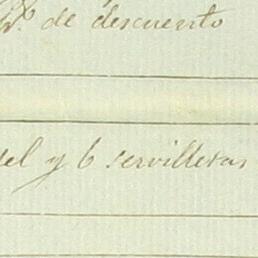 de descuento
el y 6 servilletas